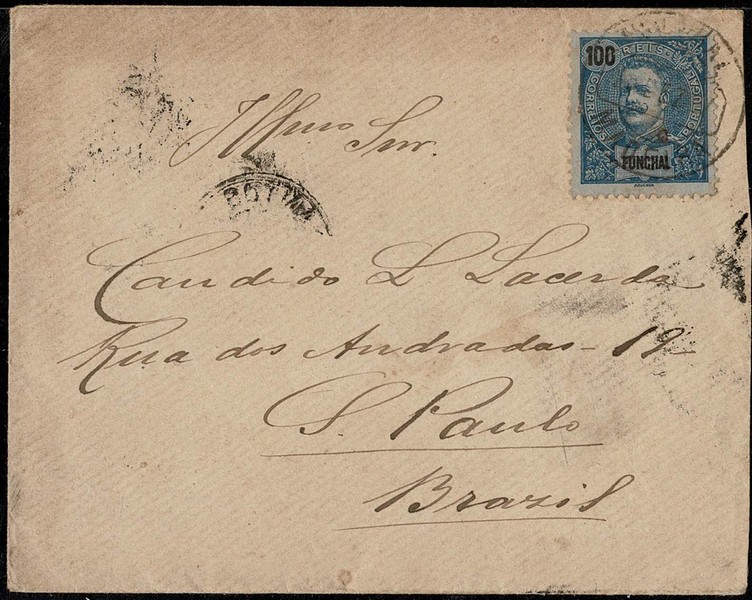 100
REIS PORTUGAL
CORREIOS
FUNCHAL
Illmo Snr.
Candido L Lacerda
Rua dos Andradas - 19
S. Paulo
Brazil